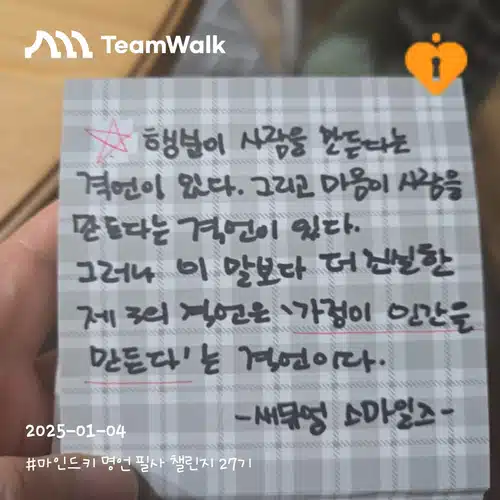 TeamWalk
행실이 사람을 만든다는
격언이 있다. 그리고 마음이 사람을
만든다는 격언이 있다.
그러나 이 말보다 더 진실한
제 3의 격언은 '가정이 인간을
만든다'는 격언이다.
-새뮤얼 스마일즈-
2025-01-04
#마인드키 명언 필사 챌린지 27기